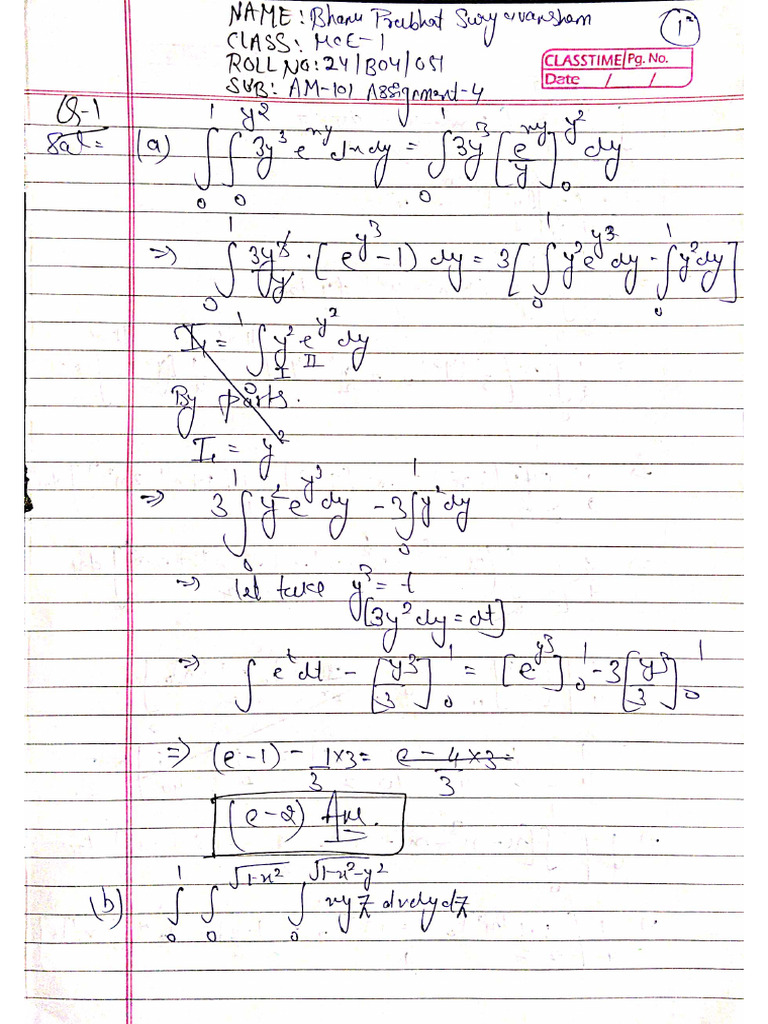 NAME: Bhanu Prabhat Suryavansham
CLASS: MCE-1
ROLL NO: 24/B04/051
SUB: AM-101 Assignment-4
1
CLASSTIME Pg. No.
Date / /
Q-1
Sol = (a) ∫₀¹ ∫₀^{y²} 3y³ e^{xy} dx dy = ∫₀¹ 3y³ [e^{xy}/y]₀^{y²} dy
=> ∫₀¹ 3y³/y · [e^{y³} - 1) dy = 3[∫₀¹ y² e^{y³} dy - ∫₀¹ y² dy]
I₁ = ∫₀¹ y² e^{y²} dy
I II
By parts.
I₁ = y²
=> 3∫₀¹ y² e^{y³} dy - 3∫₀¹ y² dy
=> let take y³ = t
[3y² dy = dt]
=> ∫ e^t dt - [y³/3]₀¹ = [e^{y³}]₀¹ - 3[y³/3]₀¹
=> (e-1) - 1/3 ×3 = e - 4/3 ×3 =
(e-2) Ans.
(b) ∫₀¹ ∫₀^{√(1-x²)} ∫₀^{√(1-x²-y²)} xyz dx dy dz